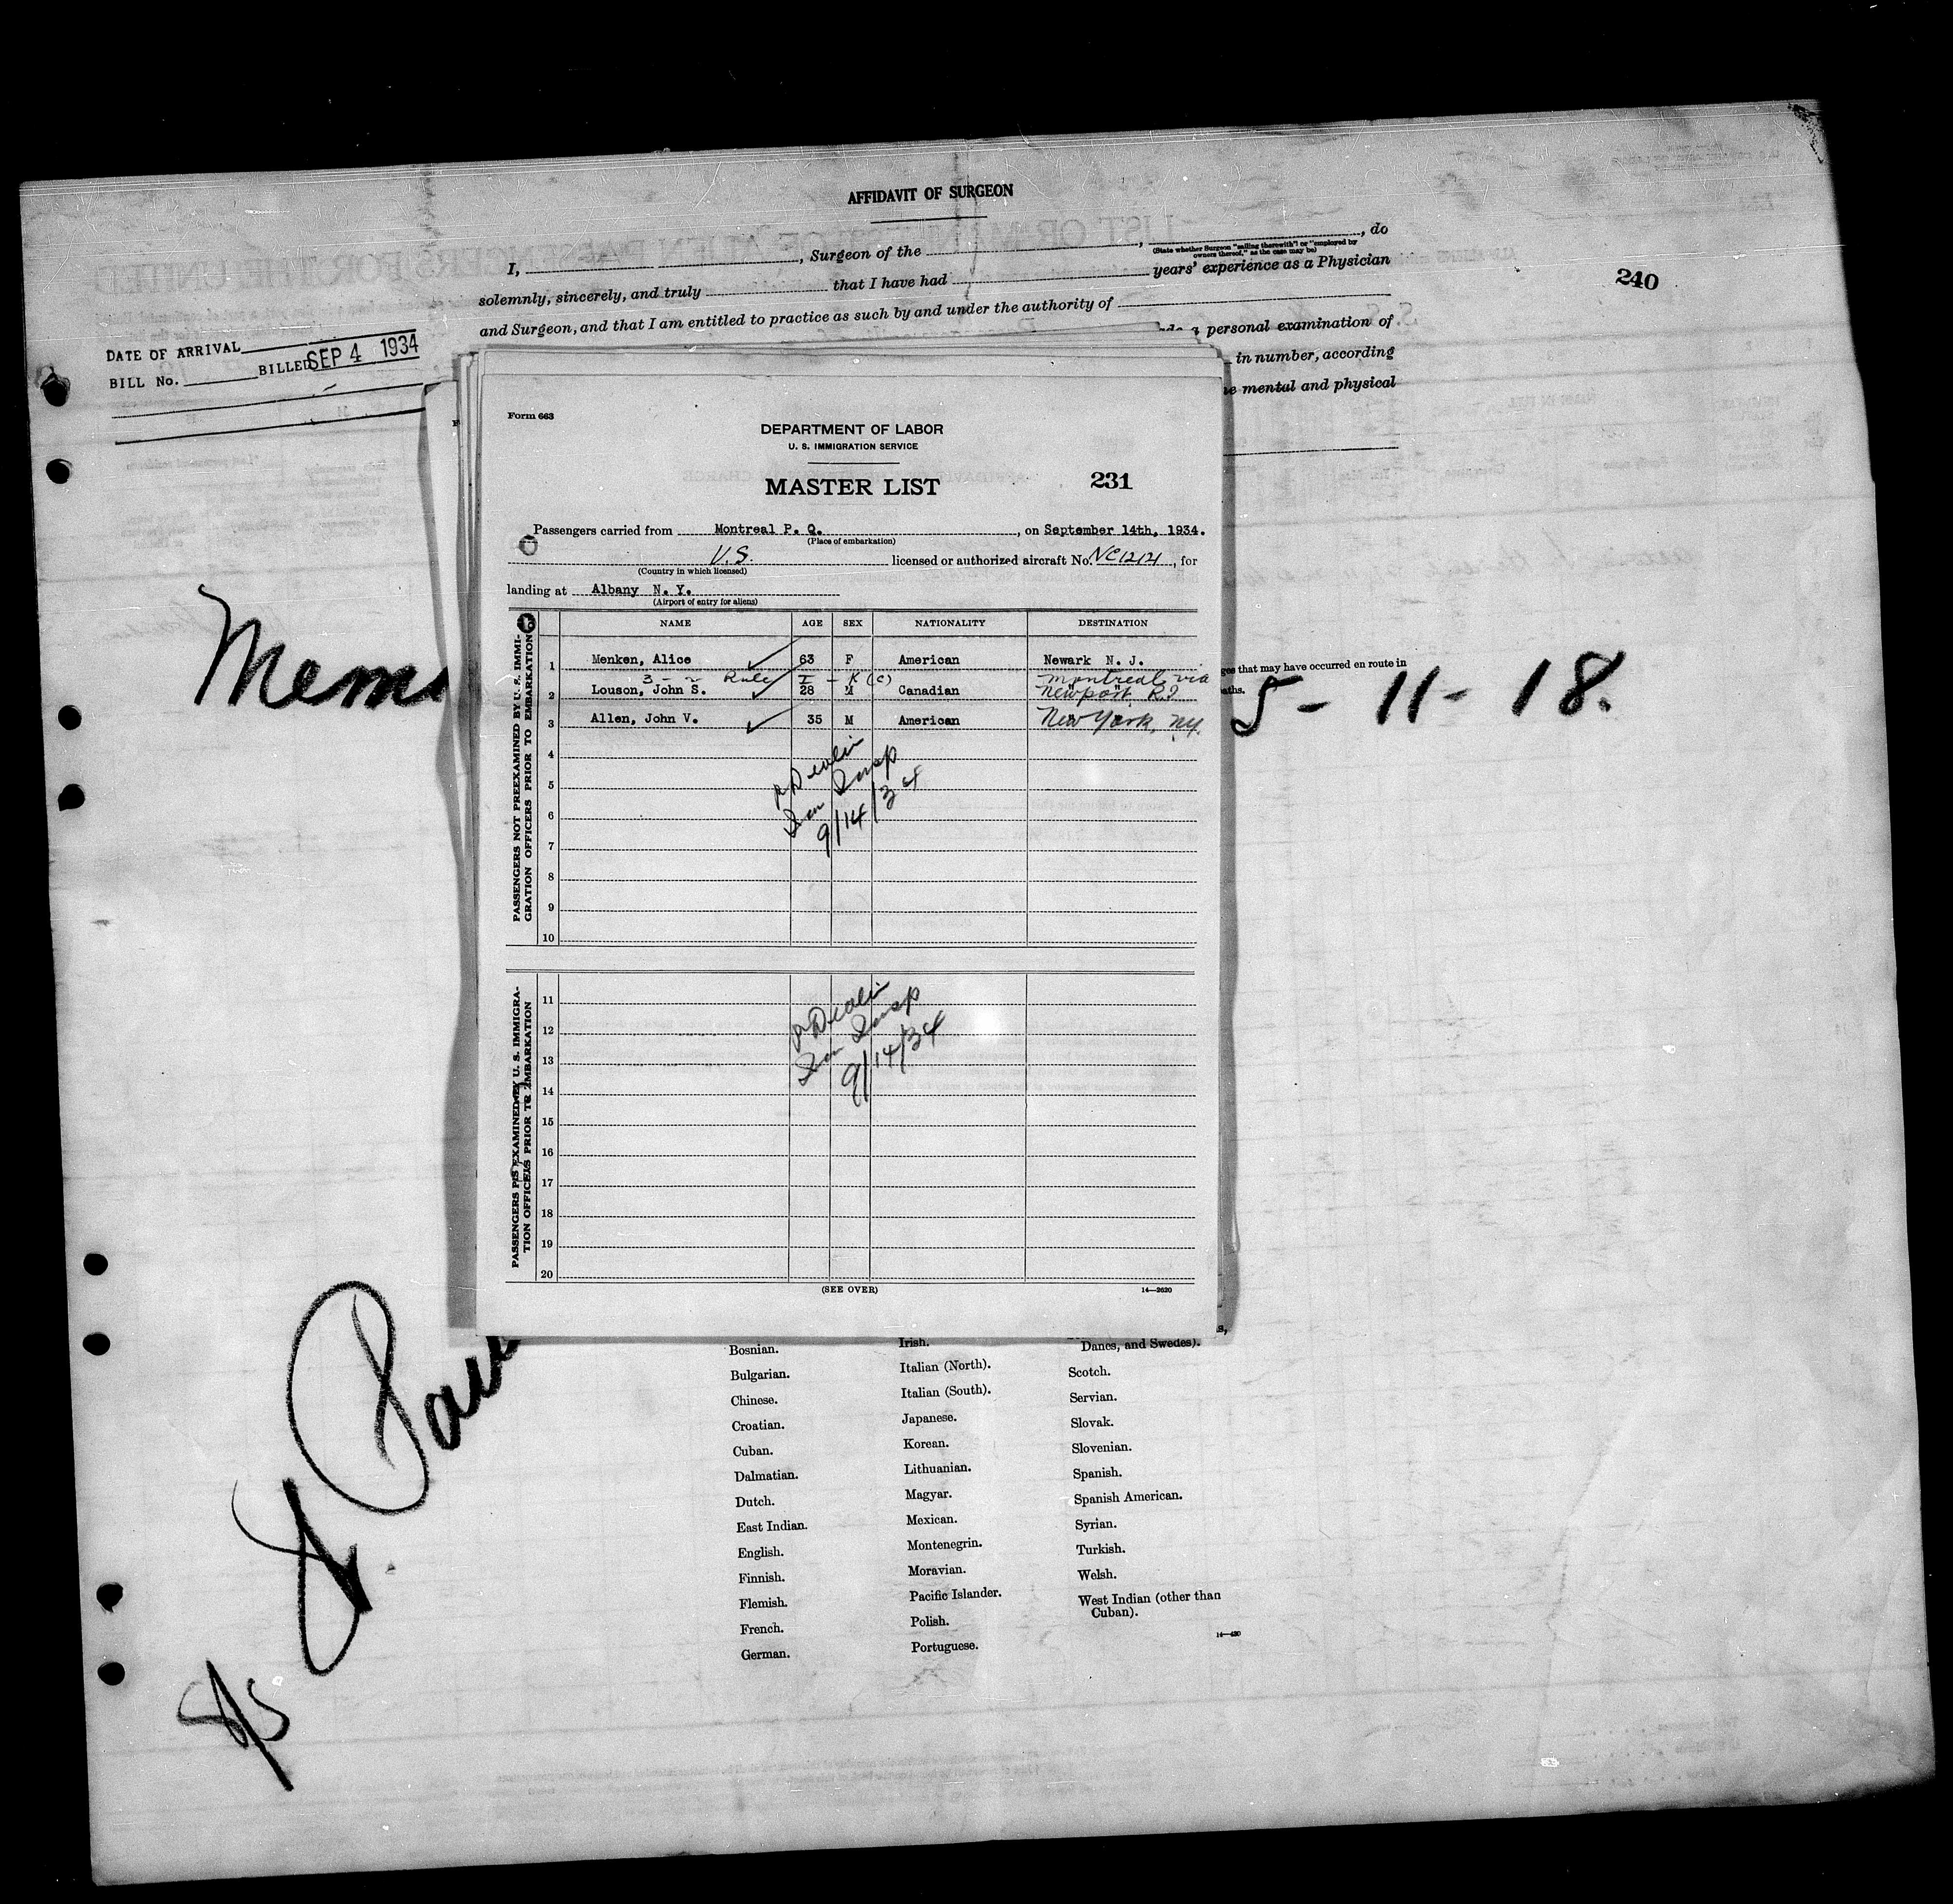 AFFIDAVIT OF SURGEON
I, , Surgeon of the , , do
(State whether Surgeon "sailing therewith" or "employed by
owners thereof," as the case may be)
solemnly, sincerely, and truly that I have had years' experience as a Physician
and Surgeon, and that I am entitled to practice as such by and under the authority of
a personal examination of
in number, according
mental and physical
240
DATE OF ARRIVAL
BILL No. BILLED SEP 4 1934
Form 663
DEPARTMENT OF LABOR
U. S. IMMIGRATION SERVICE
MASTER LIST
231
Passengers carried from Montreal P. Q. , on September 14th, 1934.
(Place of embarkation)
U.S. licensed or authorized aircraft No. NC12121, for
(Country in which licensed)
landing at Albany N. Y.
(Airport of entry for aliens)
PASSENGERS NOT PREEXAMINED BY U. S. IMMI-
GRATION OFFICERS PRIOR TO EMBARKATION
NAME AGE SEX NATIONALITY DESTINATION
1 Menken, Alice 63 F American Newark N. J.
3 - 2 Rule I - K (c) Montreal via
2 Louson, John S. 28 M Canadian Newport R I
3 Allen, John V. 35 M American New York, NY.
4
5
6
7
8
9
10
Devlin
Insp
9/14/34
PASSENGERS EXAMINED BY U. S. IMMIGRA-
TION OFFICERS PRIOR TO EMBARKATION
11
12
13
14
15
16
17
18
19
20
Devlin
Insp
9/14/34
(SEE OVER)
14—2620
ges that may have occurred en route in
5 - 11 - 18.
Bosnian.
Bulgarian.
Chinese.
Croatian.
Cuban.
Dalmatian.
Dutch.
East Indian.
English.
Finnish.
Flemish.
French.
German.
Irish.
Italian (North).
Italian (South).
Japanese.
Korean.
Lithuanian.
Magyar.
Mexican.
Montenegrin.
Moravian.
Pacific Islander.
Polish.
Portuguese.
Danes, and Swedes).
Scotch.
Servian.
Slovak.
Slovenian.
Spanish.
Spanish American.
Syrian.
Turkish.
Welsh.
West Indian (other than
Cuban).
14—430